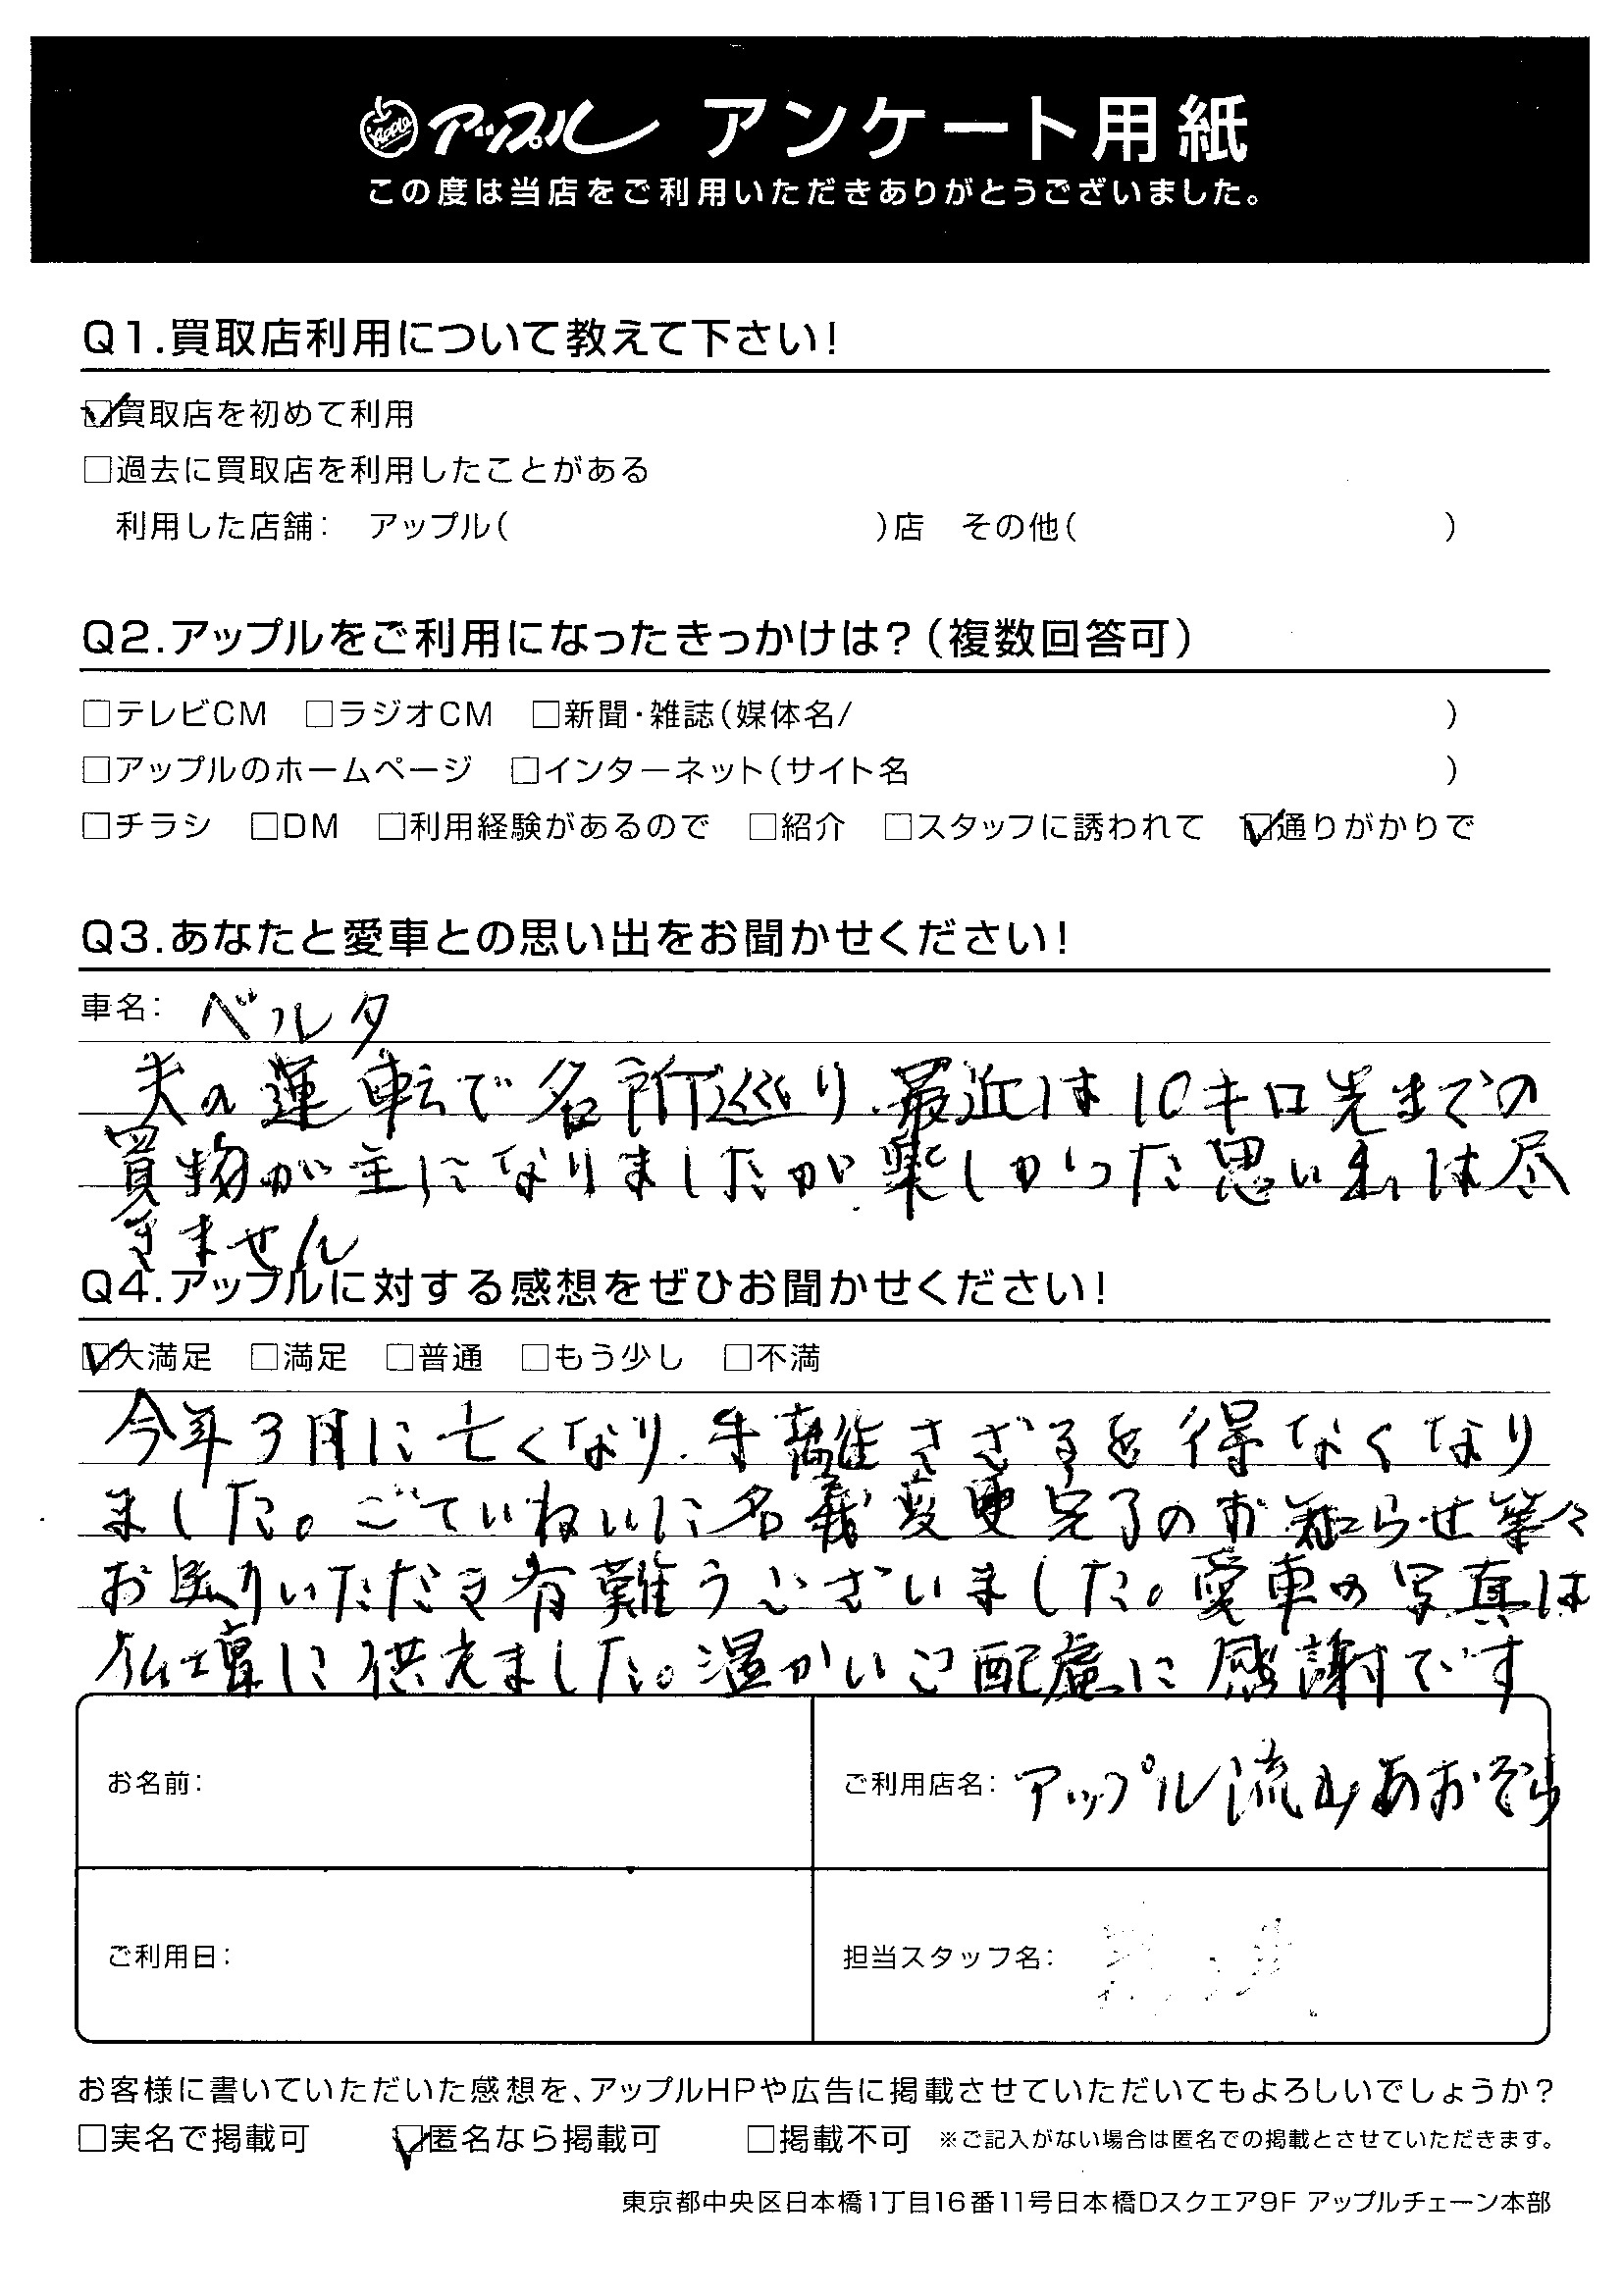 Apple アップル アンケート用紙
この度は当店をご利用いただきありがとうございました。
Q1.買取店利用について教えて下さい!
☑買取店を初めて利用
□過去に買取店を利用したことがある
利用した店舗: アップル( )店 その他( )
Q2.アップルをご利用になったきっかけは?(複数回答可)
□テレビCM □ラジオCM □新聞・雑誌(媒体名/ )
□アップルのホームページ □インターネット(サイト名 )
□チラシ □DM □利用経験があるので □紹介 □スタッフに誘われて ☑通りがかりで
Q3.あなたと愛車との思い出をお聞かせください!
車名: ベルタ
夫の運転で名所巡り、最近は10キロ先までの
買物が主になりましたが、楽しかった思い出は尽
きません
Q4.アップルに対する感想をぜひお聞かせください!
☑大満足 □満足 □普通 □もう少し □不満
今年3月に亡くなり、手離さざるを得なくなり
ました。ごていねいに名義変更完了のお知らせ等々
お送りいただき有難うございました。愛車の写真は
仏壇に供えました。温かいご配慮に感謝です
お名前:
ご利用店名: アップル流山あおぞら
ご利用日:
担当スタッフ名:
お客様に書いていただいた感想を、アップルHPや広告に掲載させていただいてもよろしいでしょうか?
□実名で掲載可 ☑匿名なら掲載可 □掲載不可 ※ご記入がない場合は匿名での掲載とさせていただきます。
東京都中央区日本橋1丁目16番11号日本橋Dスクエア9F アップルチェーン本部